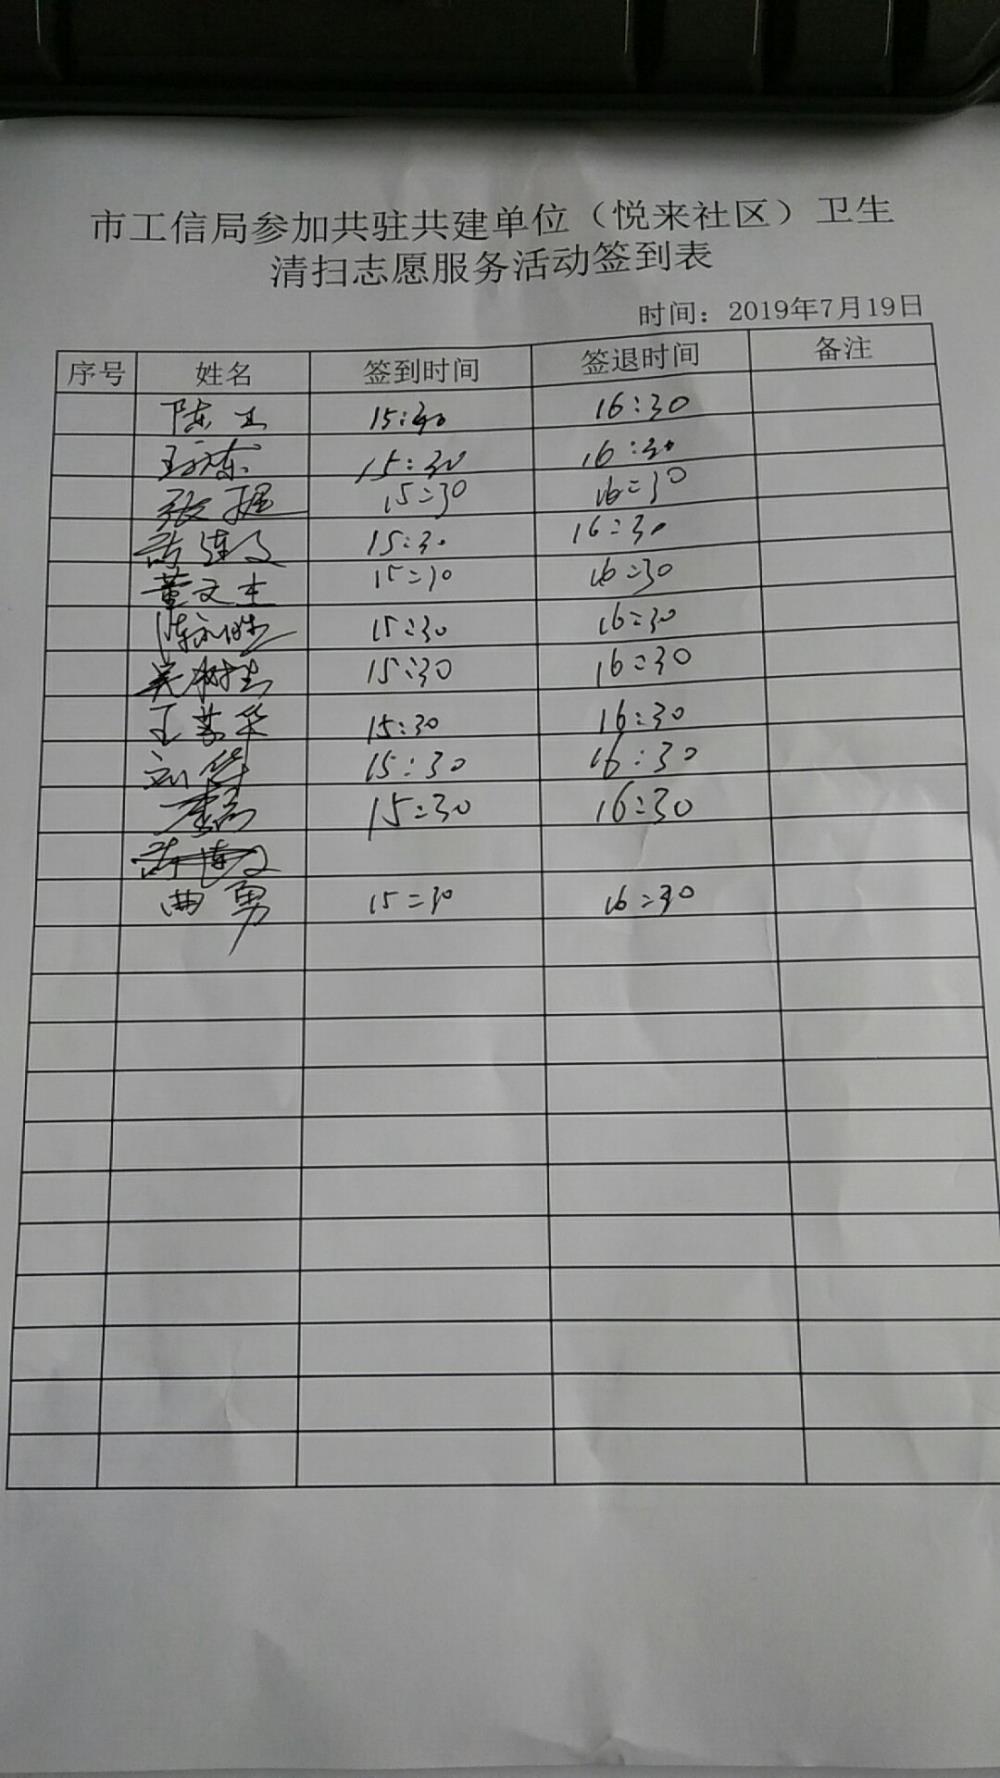 市工信局参加共驻共建单位（悦来社区）卫生
清扫志愿服务活动签到表
时间：2019年7月19日
序号 姓名 签到时间 签退时间 备注
陈 15:30 16:30
王 15:30 16:30
张 15:30 16:30
15:30 16:30
董文杰 15:30 16:30
陈 15:30 16:30
吴树 15:30 16:30
王 华 15:30 16:30
刘 15:30 16:30
15:30 16:30
曲勇 15:30 16:30